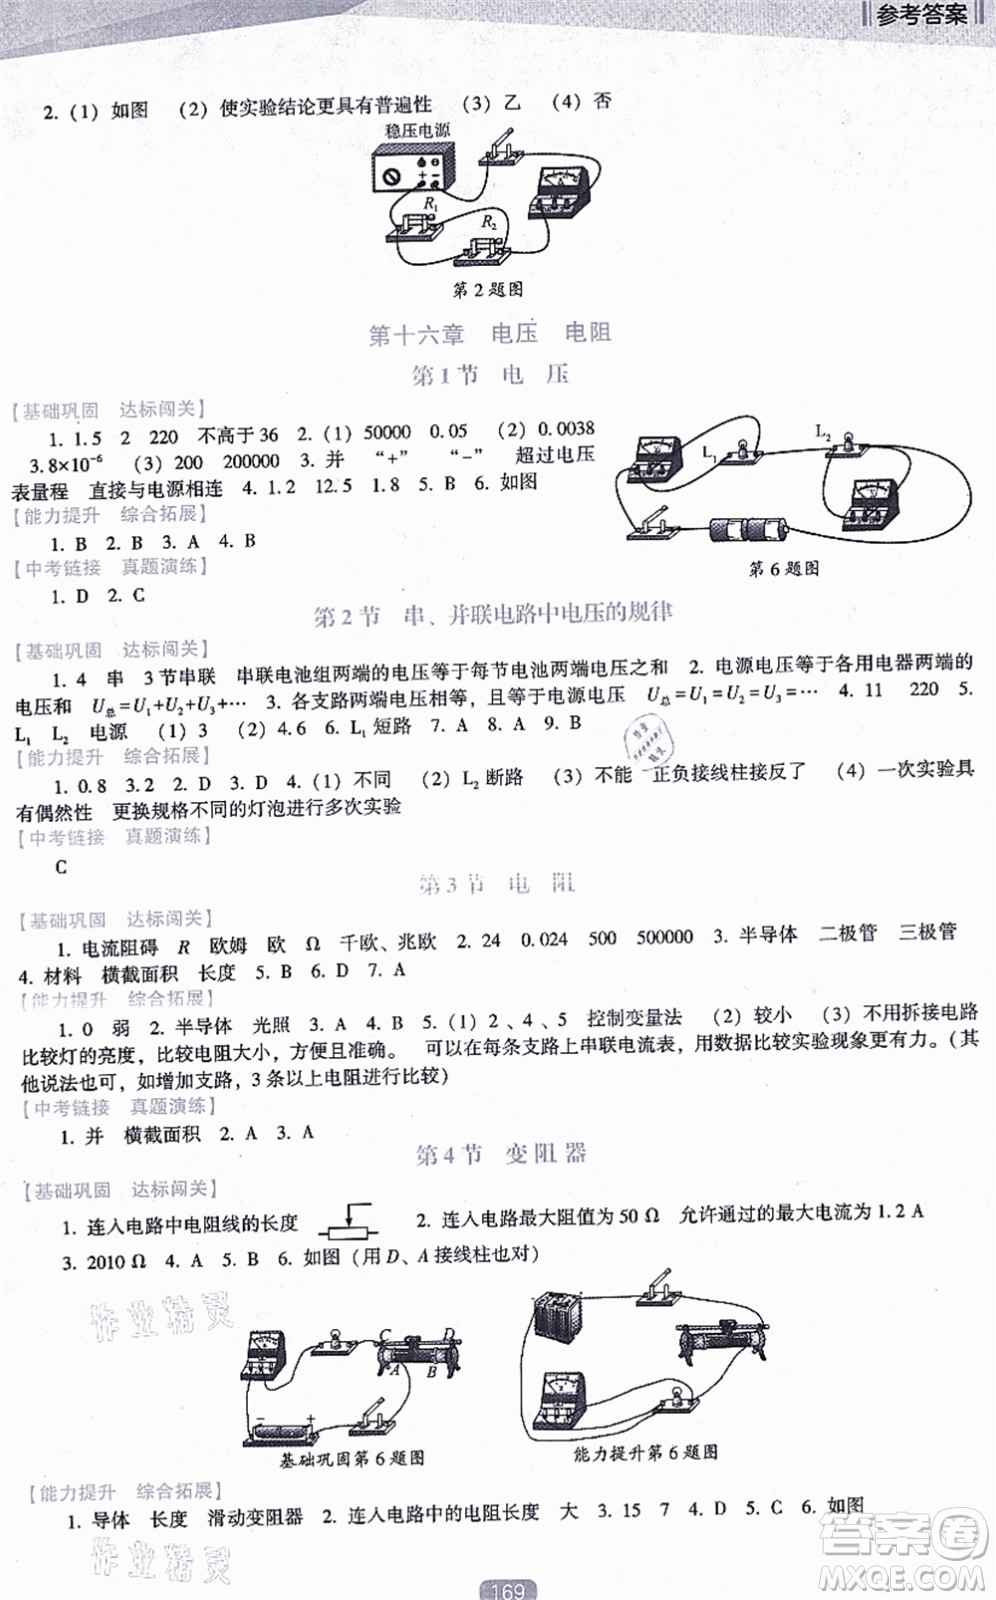 参考答案
2. (1) 如图 (2) 使实验结论更具有普遍性 (3) 乙 (4) 否
稳压电源
R₁
R₂
第2题图
第十六章 电压 电阻
第1节 电 压
【基础巩固 达标闯关】
1. 1.5 2 220 不高于36 2. (1) 50000 0.05 (2) 0.0038
3.8×10⁻⁶ (3) 200 200000 3. 并 “+” “-” 超过电压
表量程 直接与电源相连 4. 1.2 12.5 1.8 5. B 6. 如图
L₁
L₂
第6题图
【能力提升 综合拓展】
1. B 2. B 3. A 4. B
【中考链接 真题演练】
1. D 2. C
第2节 串、并联电路中电压的规律
【基础巩固 达标闯关】
1. 4 串 3节串联 串联电池组两端的电压等于每节电池两端电压之和 2. 电源电压等于各用电器两端的
电压和 U总=U₁+U₂+U₃+⋯ 3. 各支路两端电压相等，且等于电源电压 U总=U₁=U₂=U₃=⋯ 4. 11 220 5.
L₁ L₂ 电源 (1) 3 (2) 4.6 6. L₁短路 7. A 8. A 9. B
【能力提升 综合拓展】
1. 0.8 3.2 2. D 3. D 4. (1) 不同 (2) L₂断路 (3) 不能 正负接线柱接反了 (4) 一次实验具
有偶然性 更换规格不同的灯泡进行多次实验
【中考链接 真题演练】
C
第3节 电 阻
【基础巩固 达标闯关】
1. 电流阻碍 R 欧姆 欧 Ω 千欧、兆欧 2. 24 0.024 500 500000 3. 半导体 二极管 三极管
4. 材料 横截面积 长度 5. B 6. D 7. A
【能力提升 综合拓展】
1. 0 弱 2. 半导体 光照 3. A 4. B 5. (1) 2、4、5 控制变量法 (2) 较小 (3) 不用拆接电路
比较灯的亮度，比较电阻大小，方便且准确。 可以在每条支路上串联电流表，用数据比较实验现象更有力。(其
他说法也可，如增加支路，3条以上电阻进行比较)
【中考链接 真题演练】
1. 并 横截面积 2. A 3. A
第4节 变阻器
【基础巩固 达标闯关】
1. 连入电路中电阻线的长度 2. 连入电路最大阻值为50 Ω 允许通过的最大电流为1.2 A
3. 2010 Ω 4. A 5. B 6. 如图 (用D、A接线柱也对)
作业精灵
C
D
A
B
− +
基础巩固第6题图
能力提升第6题图
【能力提升 综合拓展】
1. 导体 长度 滑动变阻器 2. 连入电路中的电阻长度 大 3. 15 7 4. D 5. C 6. 如图
作业精灵
答案圈
MXQE.COM
169